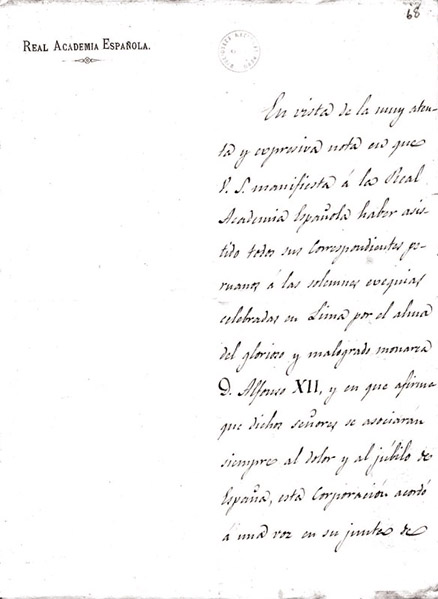 68
REAL ACADEMIA ESPAÑOLA.
En vista de la muy aten-
ta y expresiva nota en que
V. S. manifiesta á la Real
Academia Española haber asis-
tido todos sus Correspondientes pe-
ruanos á las solemnes exequias
celebradas en Lima por el alma
del glorioso y malogrado monarca
D. Alfonso XII, y en que afirma
que dichos señores se asociarán
siempre al dolor y al júbilo de
España, esta Corporación acordó
á una voz en su junta de